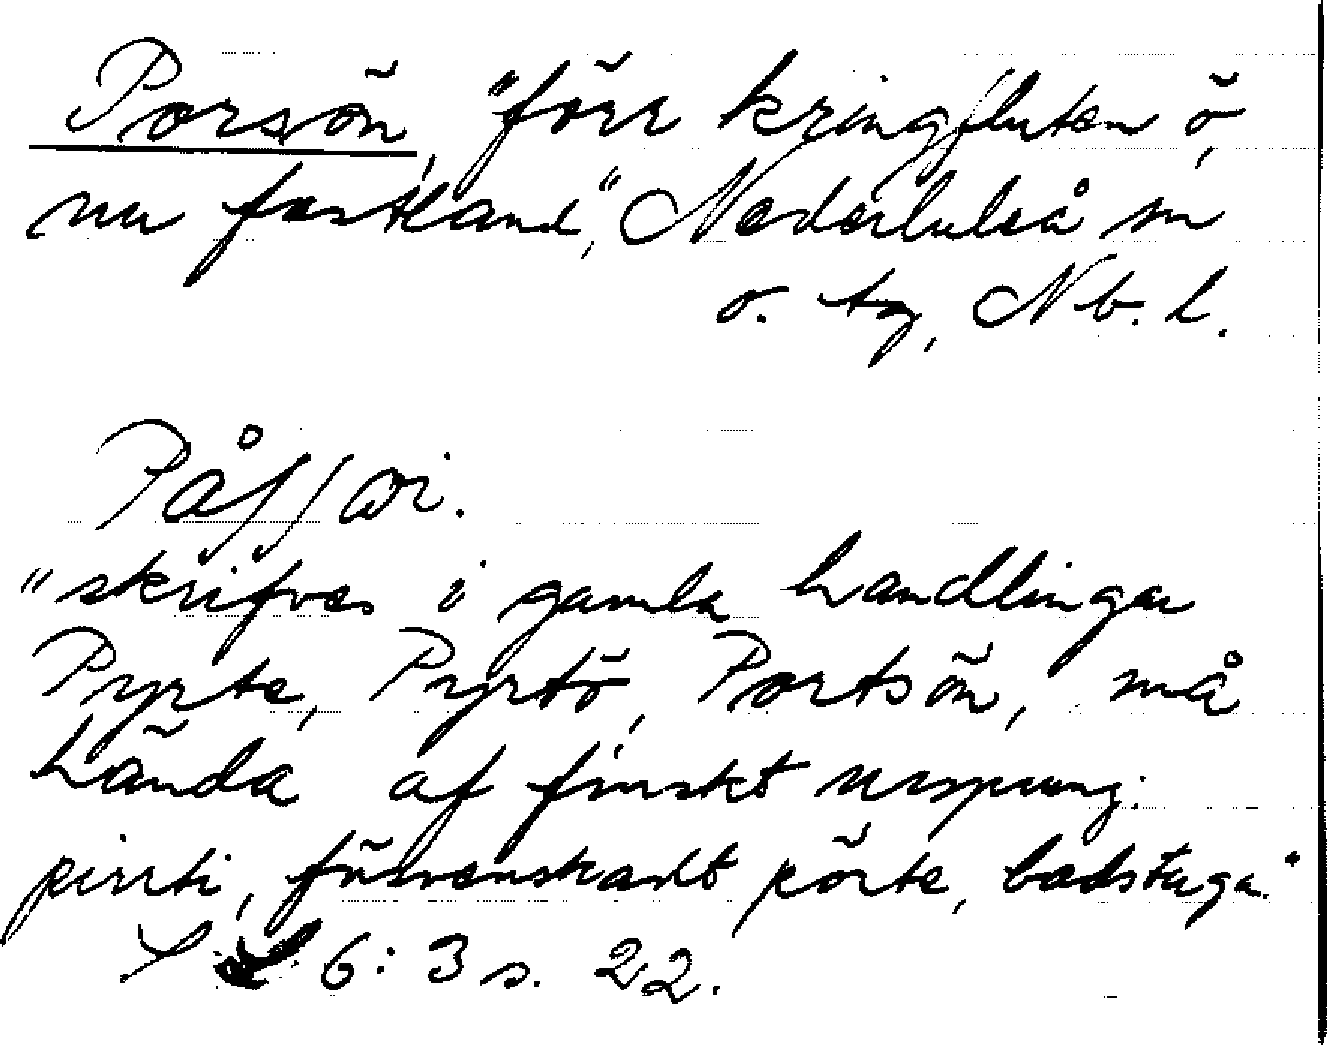 Porsön, "förr kringfluten ö,
nu fastland", Nederluleå sn
o. tg, Nb. l.
"skrifves i gamla handlingar
Pyrte, Pyrtö, Portsön, må
hända af finskt ursprung:
pirrti, försvenskadt pörte, badstuga."
6:3 s. 22.